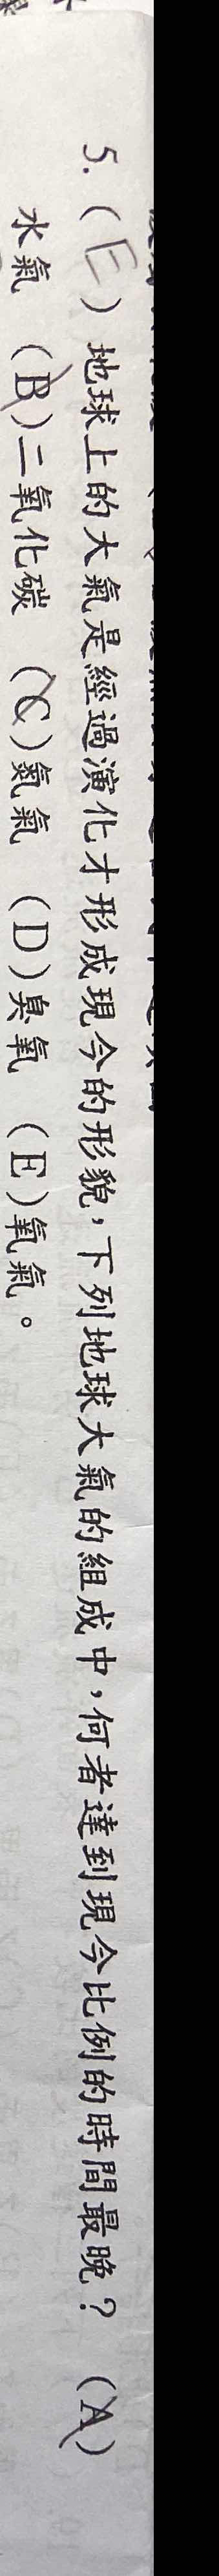 5. (E) 地球上的大氣是經過演化才形成現今的形貌，下列地球大氣的組成中，何者達到現今比例的時間最晚？ (A)
水氣 (B)二氧化碳 (C)氮氣 (D)臭氧 (E)氧氣。